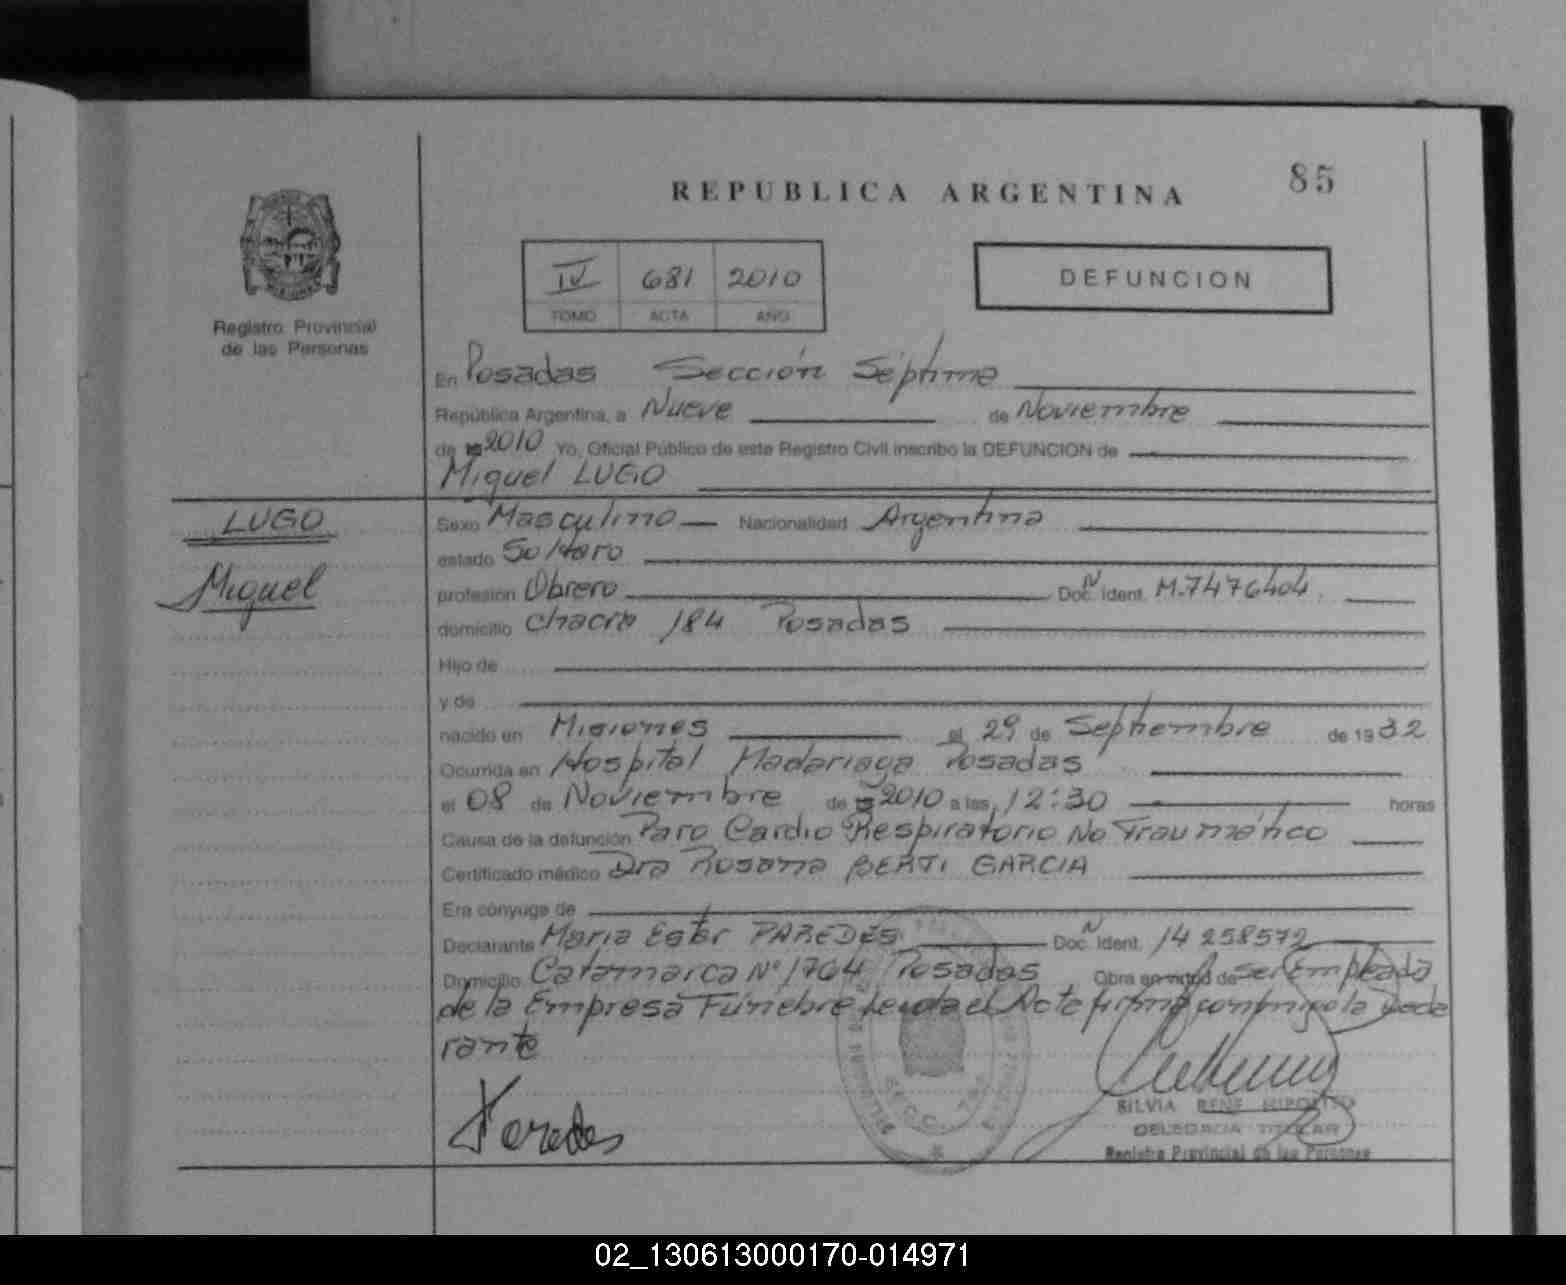 REPUBLICA ARGENTINA
85
IV 681 2010
TOMO ACTA AÑO
DEFUNCION
Registro Provincial
de las Personas
En Posadas Sección Séptima
República Argentina, a Nueve de Noviembre
de 2010 Yo, Oficial Público de este Registro Civil inscribo la DEFUNCION de
Miguel LUGO
LUGO
Miguel
Sexo Masculino Nacionalidad Argentina
estado Soltero
profesión Obrero Doc. Ident. M.7476404
domicilio chacra 184 Posadas
Hijo de
y de
nacido en Misiones el 29 de Septiembre de 1932
Ocurrida en Hospital Madariaga Posadas
el 08 de Noviembre de 2010 a las 12:30 horas
Causa de la defunción Paro Cardio Respiratorio No Traumático
Certificado médico Dra Rosana BERTI GARCIA
Era cónyuge de
Declarante Maria Ester PAREDES Doc. Ident. 14 258572
Domicilio Catamarca Nº 1704 Posadas Obra en virtud de ser Empleada
de la Empresa Fúnebre leida el Acta firma conmigo la decla
rante
Paredes
SECC. 7
SILVIA RENE HIPOLITO
DELEGADA TITULAR
Registro Provincial de las Personas
02_130613000170-014971